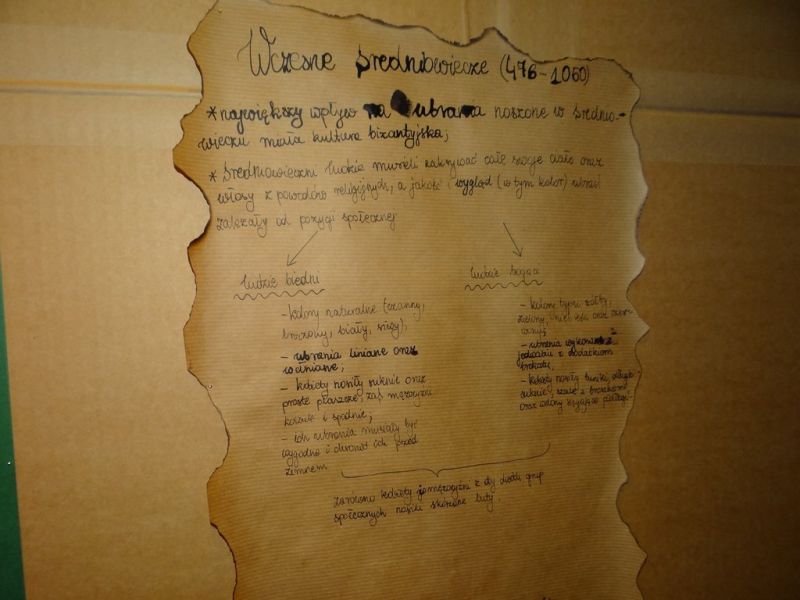 Wczesne średniowiecze (476-1050)
* największy wpływ na ubrania noszone w średnio-
wieczu miała kultura bizantyjska;
* Średniowieczni ludzie musieli zakrywać całe swoje ciało oraz
włosy z powodów religijnych, a jakość i wygląd (w tym kolor) ubrań
zależały od pozycji społecznej
ludzie biedni
- kolory naturalne (czarny,
brązowy, biały, szary);
- ubrania lniane oraz
wełniane;
- kobiety nosiły suknie oraz
proste płaszcze, zaś mężczyźni
koszule i spodnie;
- ich ubrania musiały być
wygodne i chronić ich przed
zimnem
ludzie bogaci
- kolory typu żółty,
zielony, niebieski oraz czer-
wony;
- ubrania wykonane z
jedwabiu z dodatkiem
brokatu;
- kobiety nosiły tuniki, długie
suknie, szale z
oraz welony
zarówno kobiety jak mężczyźni z obu grup
społecznych nosili skórzane buty.